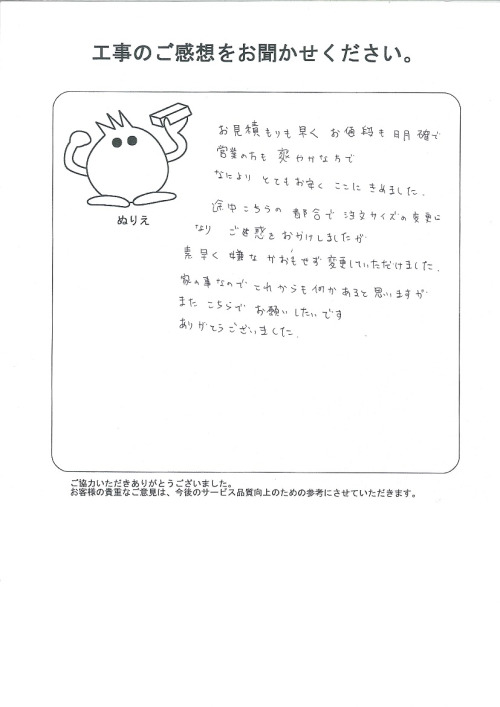 工事のご感想をお聞かせください。
お見積もりも早く お値段も明確で
営業の方も 爽やかな方で
なにより とてもお安く ここに きめました。
途中こちらの 都合で 注文サイズの変更に
なり ご迷惑をおかけしましたが
素早く 嫌な かおもせず 変更していただけました。
家の事なので これからも何かあると思いますが
また こちらで お願いしたいです
ありがとうございました。
ぬりえ
ご協力いただきありがとうございました。
お客様の貴重なご意見は、今後のサービス品質向上のための参考にさせていただきます。